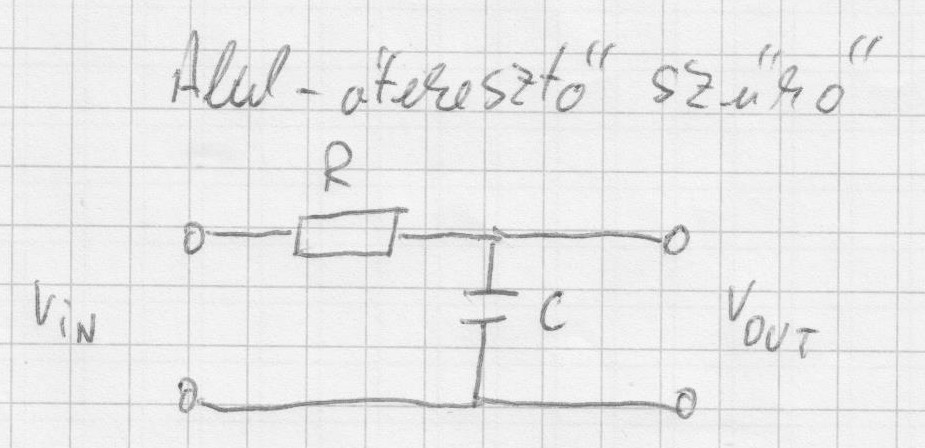 Alul-áteresztő szűrő
R
C
VIN
VOUT